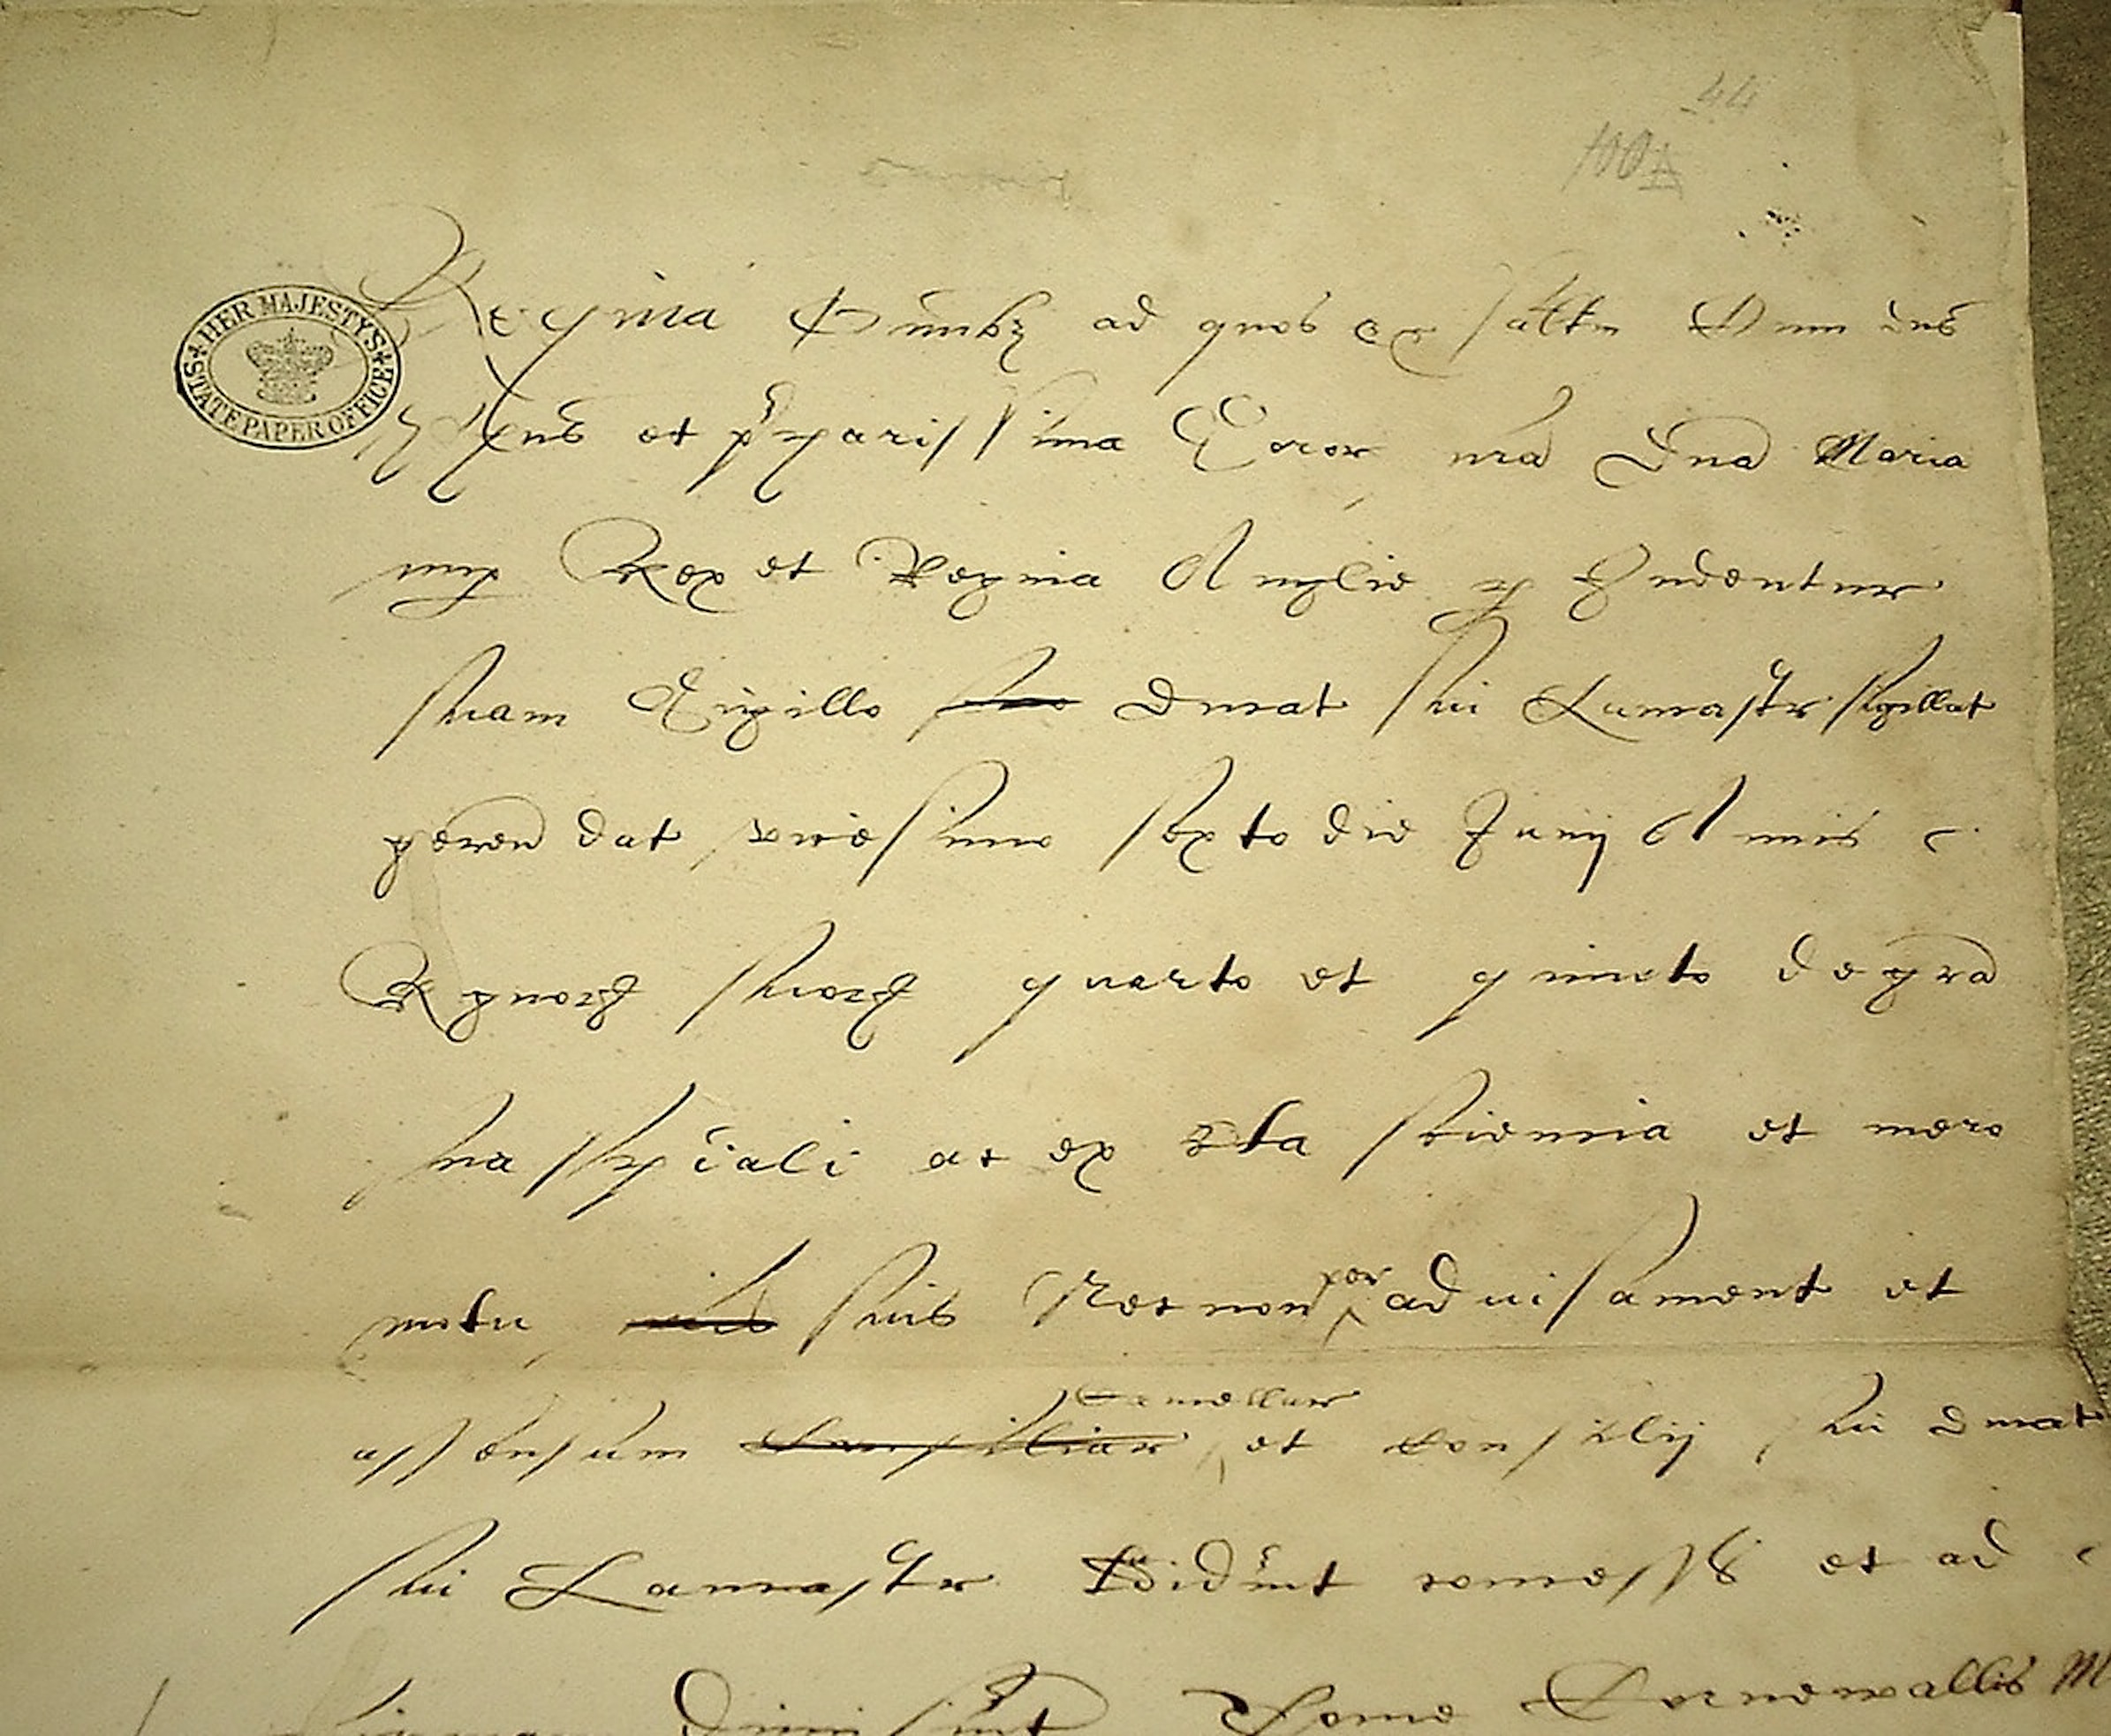 44
100A
HER MAJESTY'S STATE PAPER OFFICE
Regina Omnibz ad quos &c saltm Cum dns
Phus et p̄charissima Soror nra Dna Maria
nup Rex et Regina Anglie p Indentur
suam Sigillo suo Ducat sui Lancastr sigillat
geren dat vicesimo sexto die Junij Annis
Regnorʒ suorʒ quarto et quinto de gra
sua sp̄ciali ac ex c̄ta sciencia et mero
motu suis Necnon per advisament et
assensum Consiliar Cancellar et Consilij sui Ducat
sui Lancastr Tradidunt concess et ad
dimiserunt Thome Cornewallis